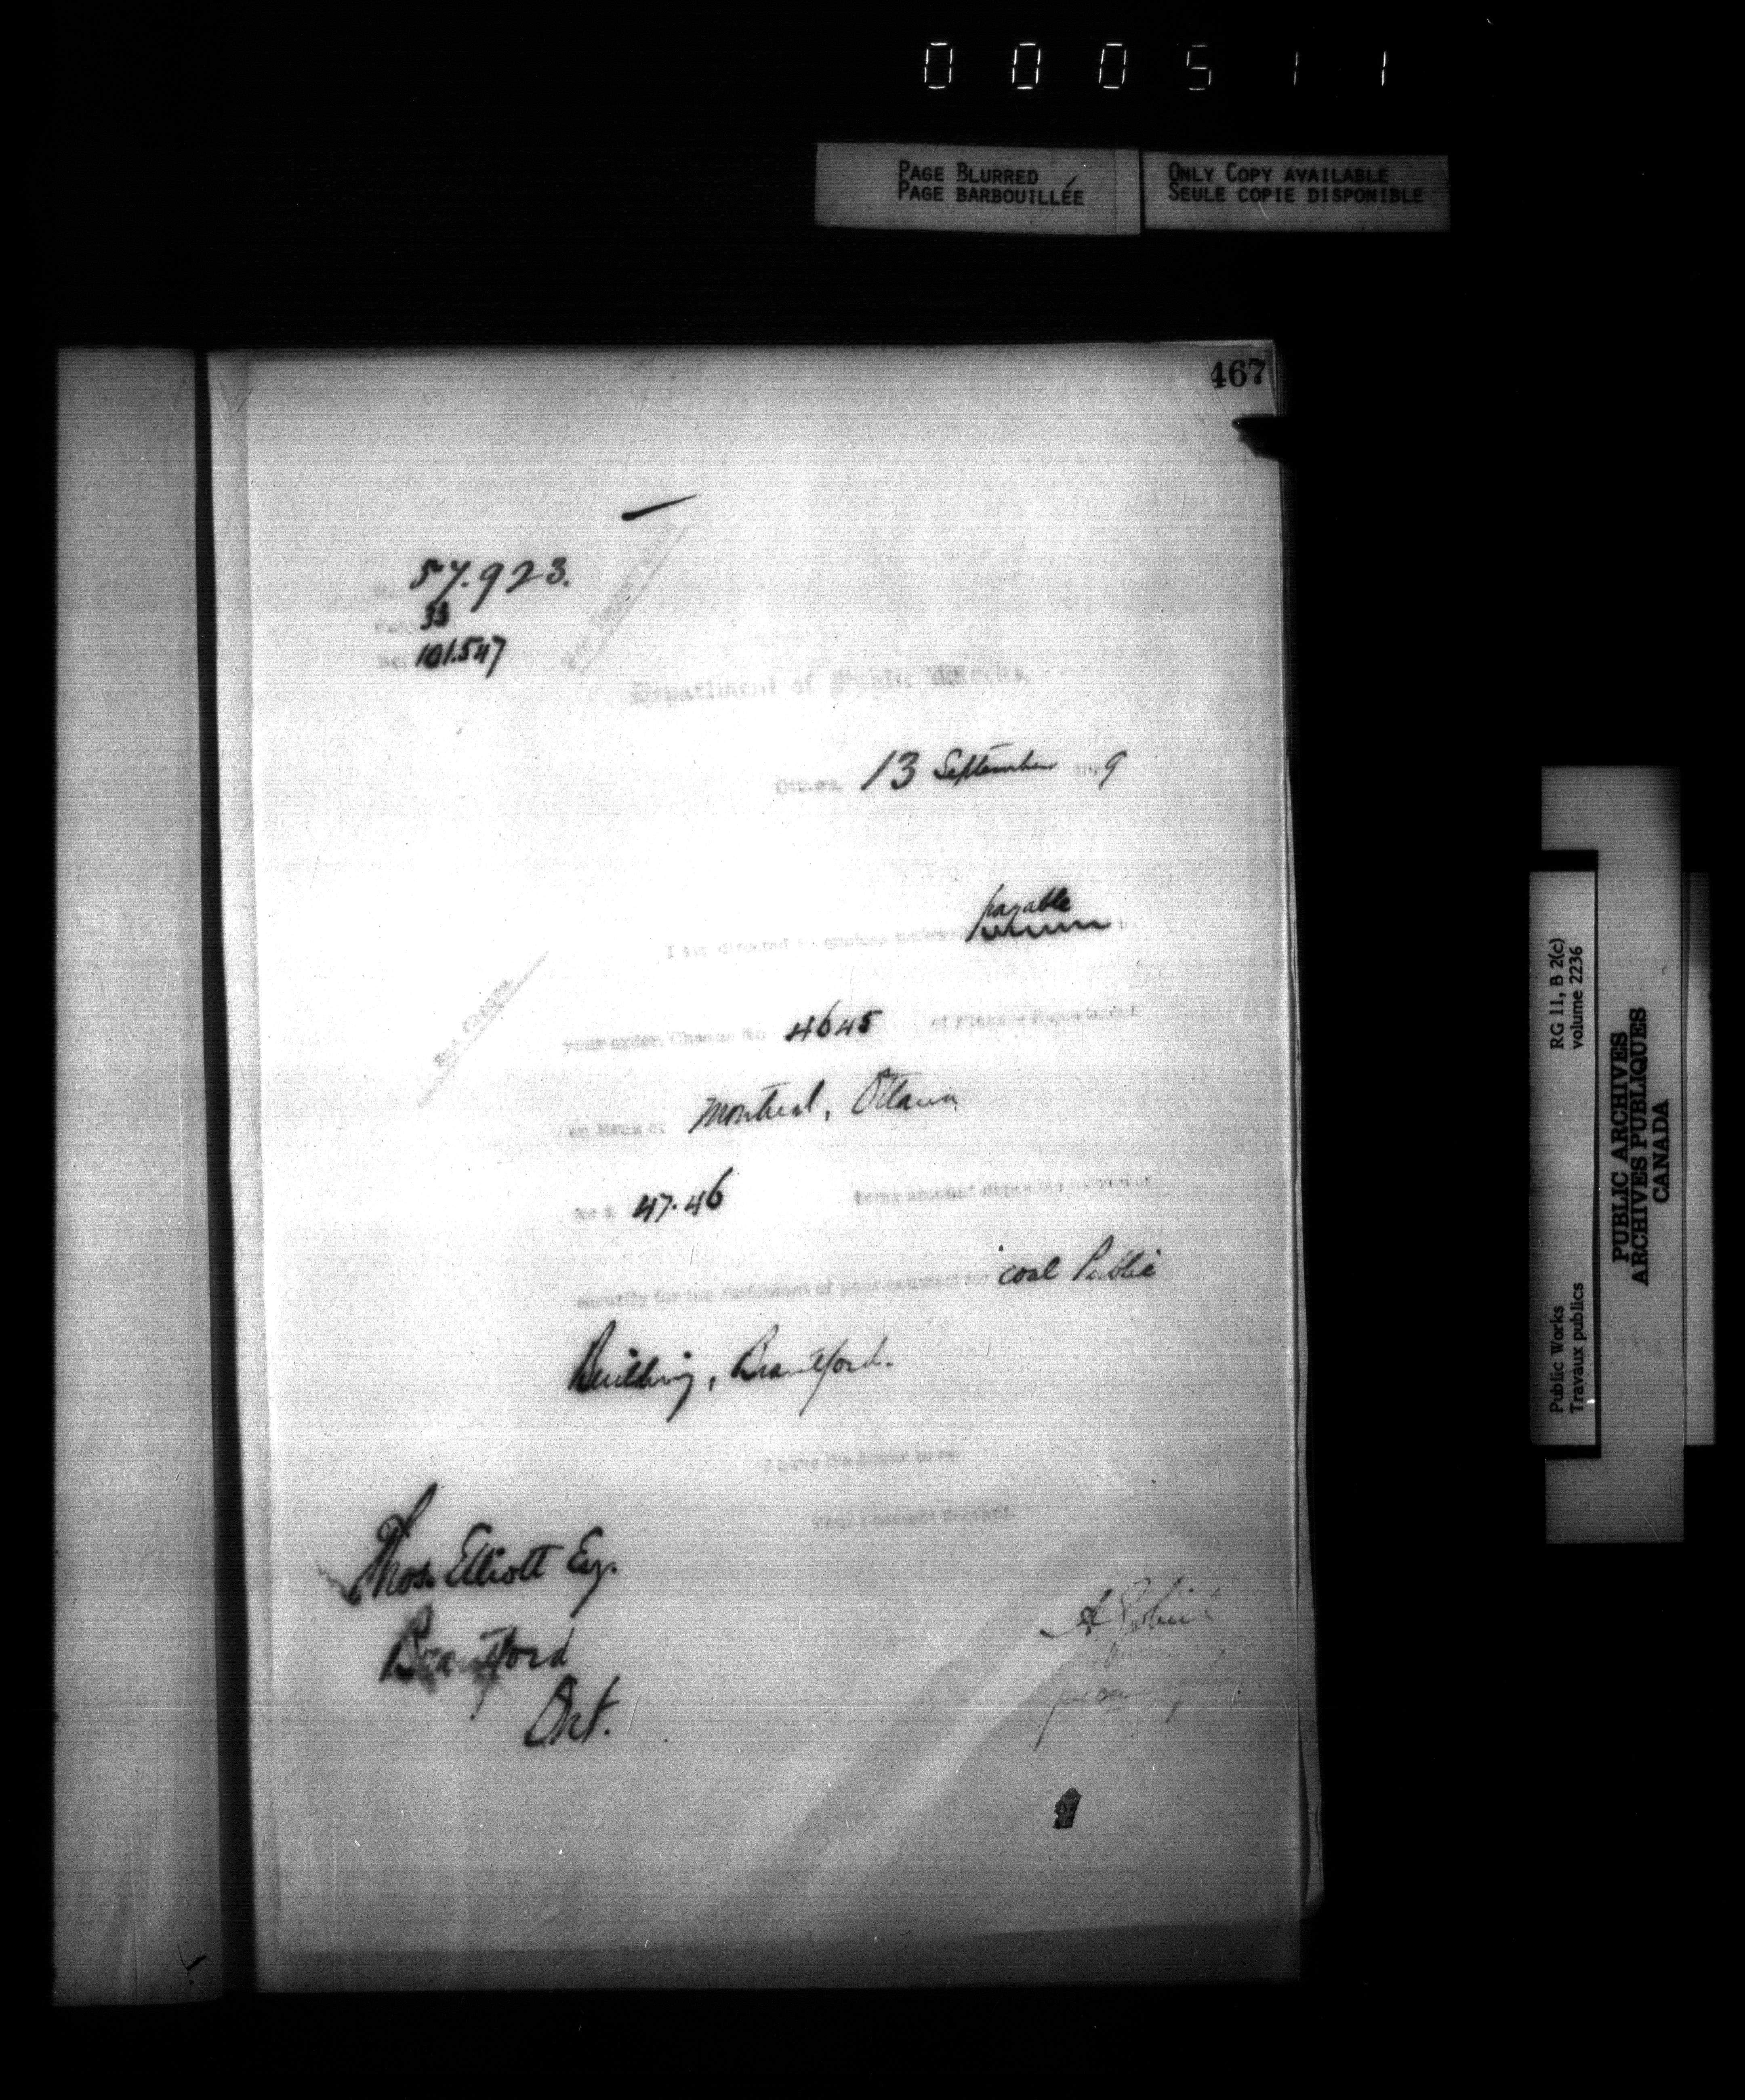 000511
PAGE BLURRED
PAGE BARBOUILLÉE
ONLY COPY AVAILABLE
SEULE COPIE DISPONIBLE
467
No. 57.923.
33
101.547
Department of Public Works,
Ottawa, 13 September 9
payable
I am directed to enclose herewith
your order, Cheque No 4645 of Finance Department
on Bank of Montreal, Ottawa
for $ 47.46 being amount deposited by you as
security for the fulfilment of your contract for coal Public
Building, Brantford.
I have the honor to be,
Your obedient Servant,
Thos. Elliott Esq.
Brantford
Ont.
RG 11, B 2(c)
volume 2236
Public Works
Travaux publics
PUBLIC ARCHIVES
ARCHIVES PUBLIQUES
CANADA